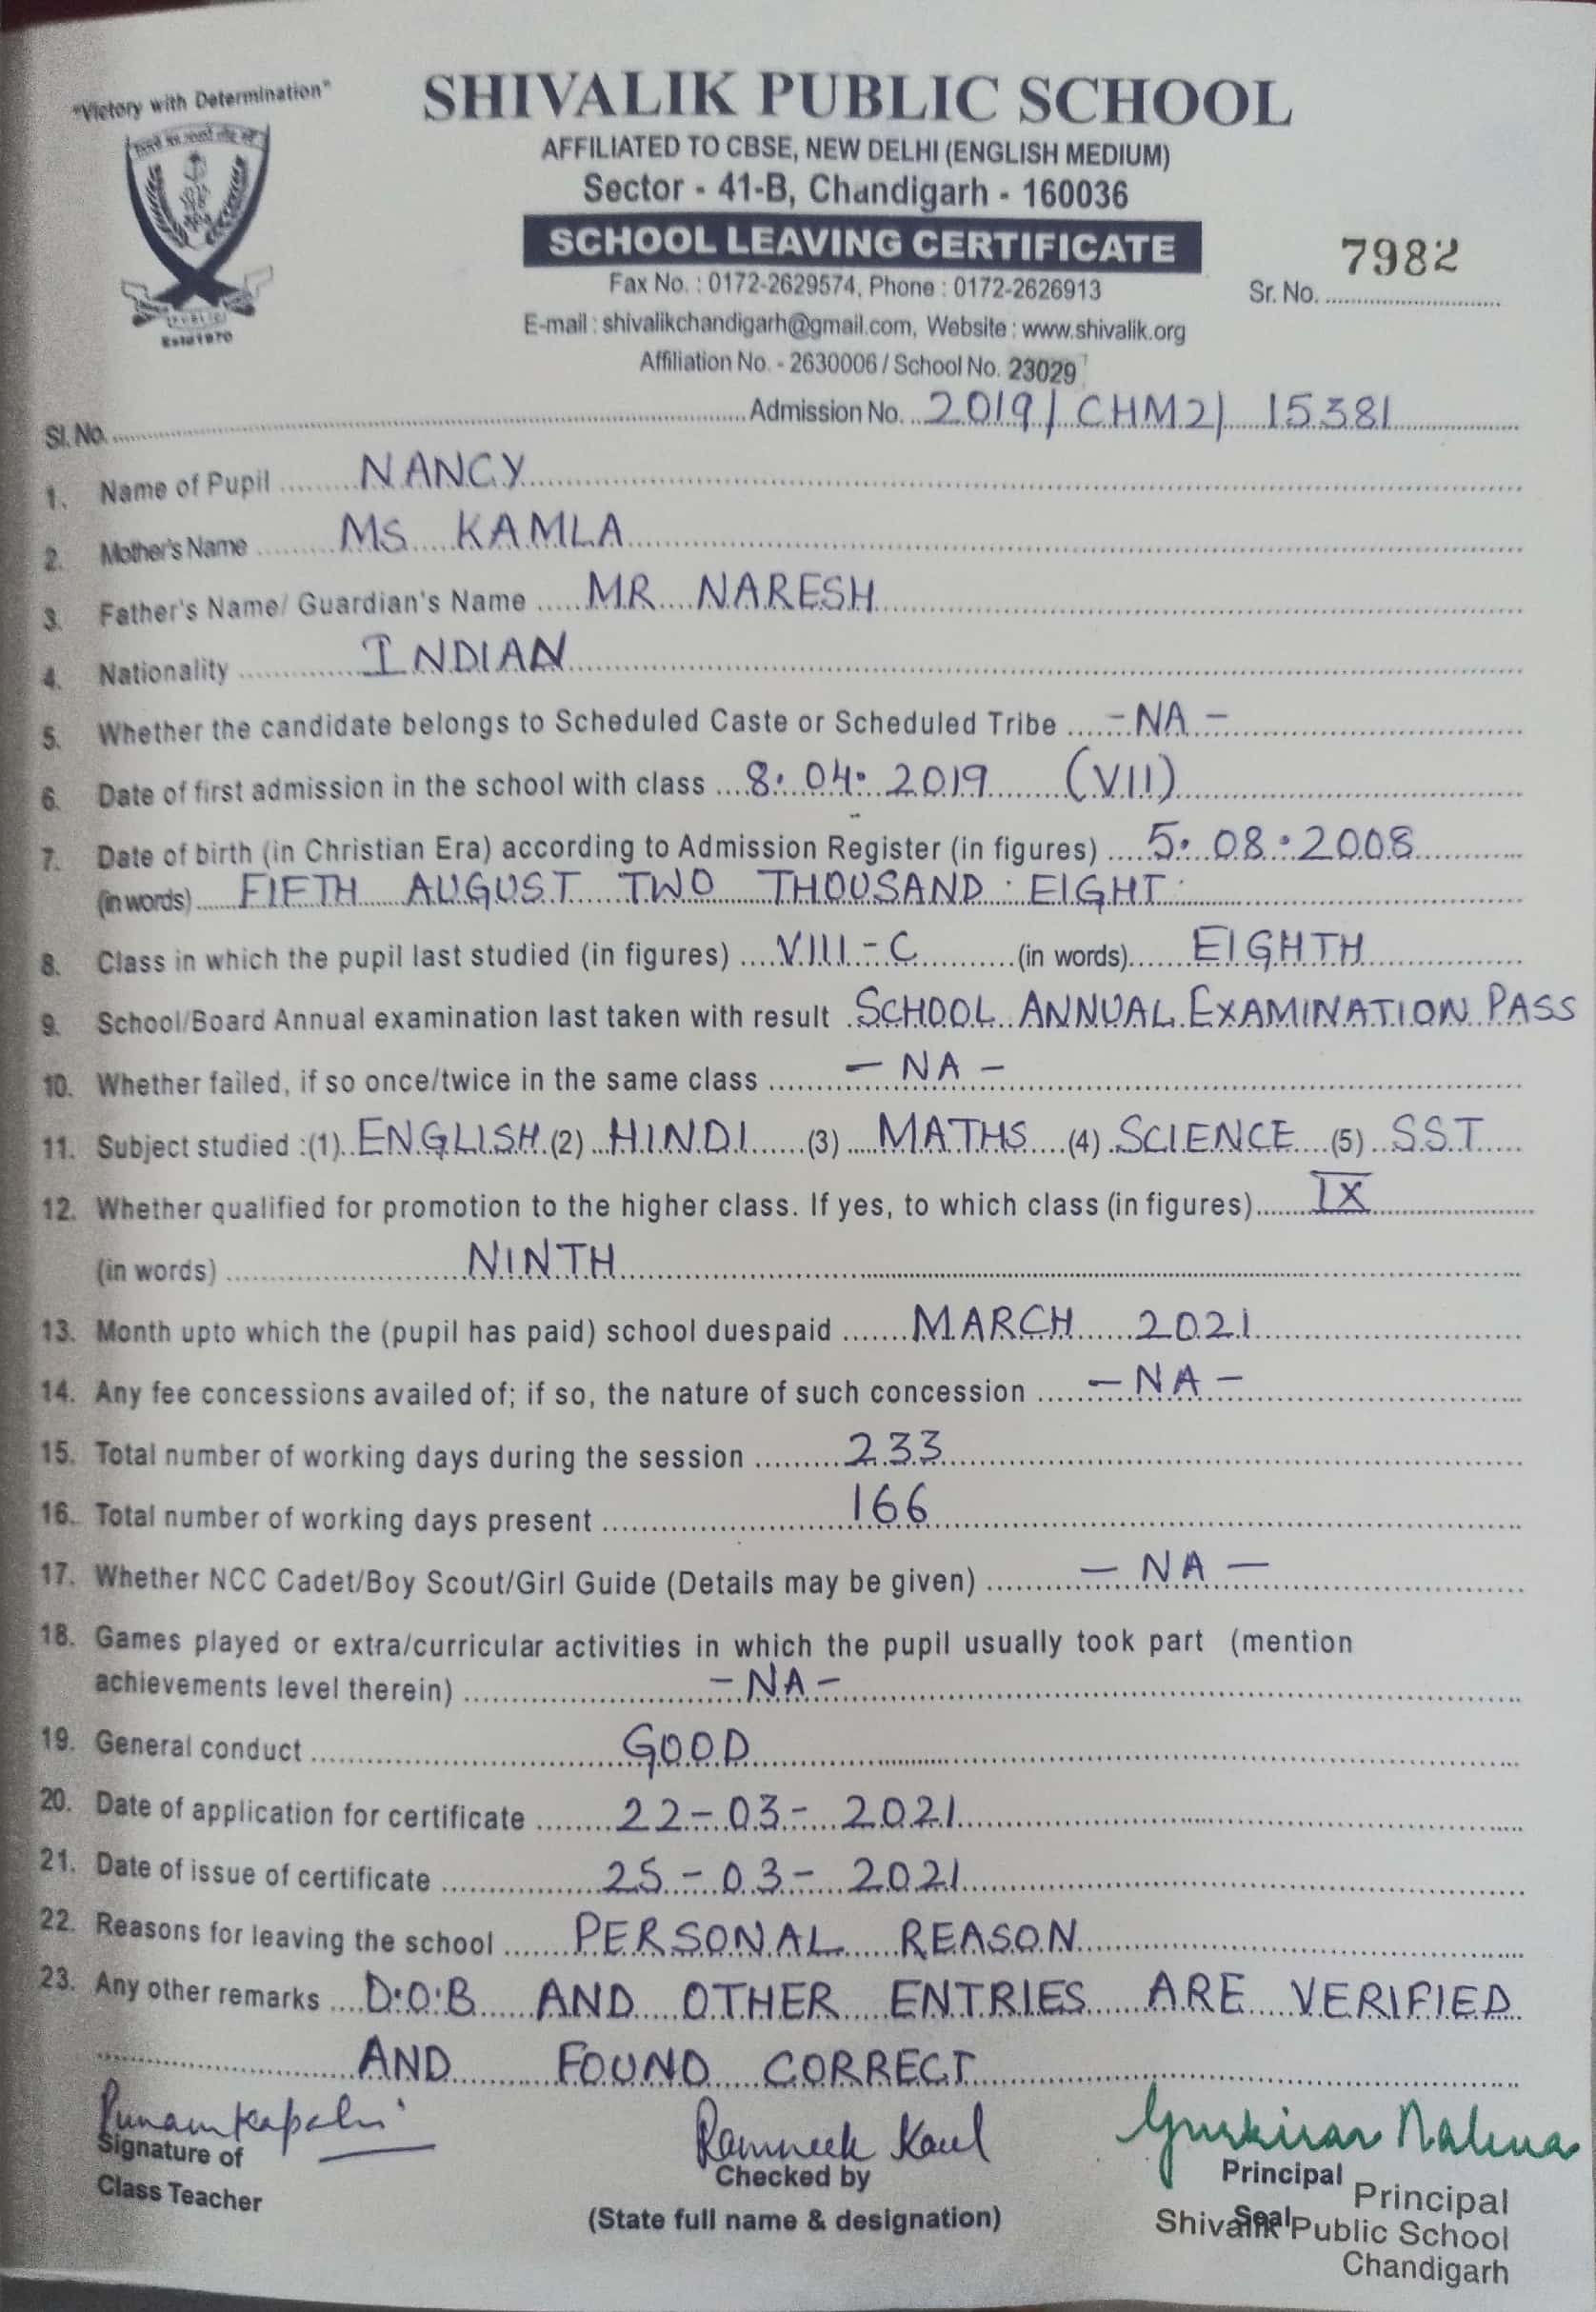 "Victory with Determination"
SHIVALIK PUBLIC SCHOOL
AFFILIATED TO CBSE, NEW DELHI (ENGLISH MEDIUM)
Sector - 41-B, Chandigarh - 160036
SCHOOL LEAVING CERTIFICATE
7982
Fax No. : 0172-2629574, Phone : 0172-2626913
Sr. No. ..............................
E-mail : shivalikchandigarh@gmail.com, Website : www.shivalik.org
Estd 1970
Affiliation No. - 2630006 / School No. 23029
Sl. No. .............................. Admission No. 2019/ CHM2/ 15381
1. Name of Pupil NANCY
2. Mother's Name MS KAMLA
3. Father's Name/ Guardian's Name MR NARESH
4. Nationality INDIAN
5. Whether the candidate belongs to Scheduled Caste or Scheduled Tribe - NA -
6. Date of first admission in the school with class 8. 04. 2019 (VII)
7. Date of birth (in Christian Era) according to Admission Register (in figures) 5. 08. 2008
(in words) FIFTH AUGUST TWO THOUSAND EIGHT
8. Class in which the pupil last studied (in figures) VIII - C (in words) EIGHTH
9. School/Board Annual examination last taken with result SCHOOL ANNUAL EXAMINATION PASS
10. Whether failed, if so once/twice in the same class - NA -
11. Subject studied :(1) ENGLISH (2) HINDI (3) MATHS (4) SCIENCE (5) SST
12. Whether qualified for promotion to the higher class. If yes, to which class (in figures) IX
(in words) NINTH
13. Month upto which the (pupil has paid) school duespaid MARCH 2021
14. Any fee concessions availed of; if so, the nature of such concession - NA -
15. Total number of working days during the session 233
16. Total number of working days present 166
17. Whether NCC Cadet/Boy Scout/Girl Guide (Details may be given) - NA -
18. Games played or extra/curricular activities in which the pupil usually took part (mention
achievements level therein) - NA -
19. General conduct GOOD
20. Date of application for certificate 22 - 03 - 2021
21. Date of issue of certificate 25 - 03 - 2021
22. Reasons for leaving the school PERSONAL REASON
23. Any other remarks D.O.B AND OTHER ENTRIES ARE VERIFIED
AND FOUND CORRECT
Ramneek Kaul
Signature of
Class Teacher
Checked by
(State full name & designation)
Principal
Seal
Principal
Shivalik Public School
Chandigarh